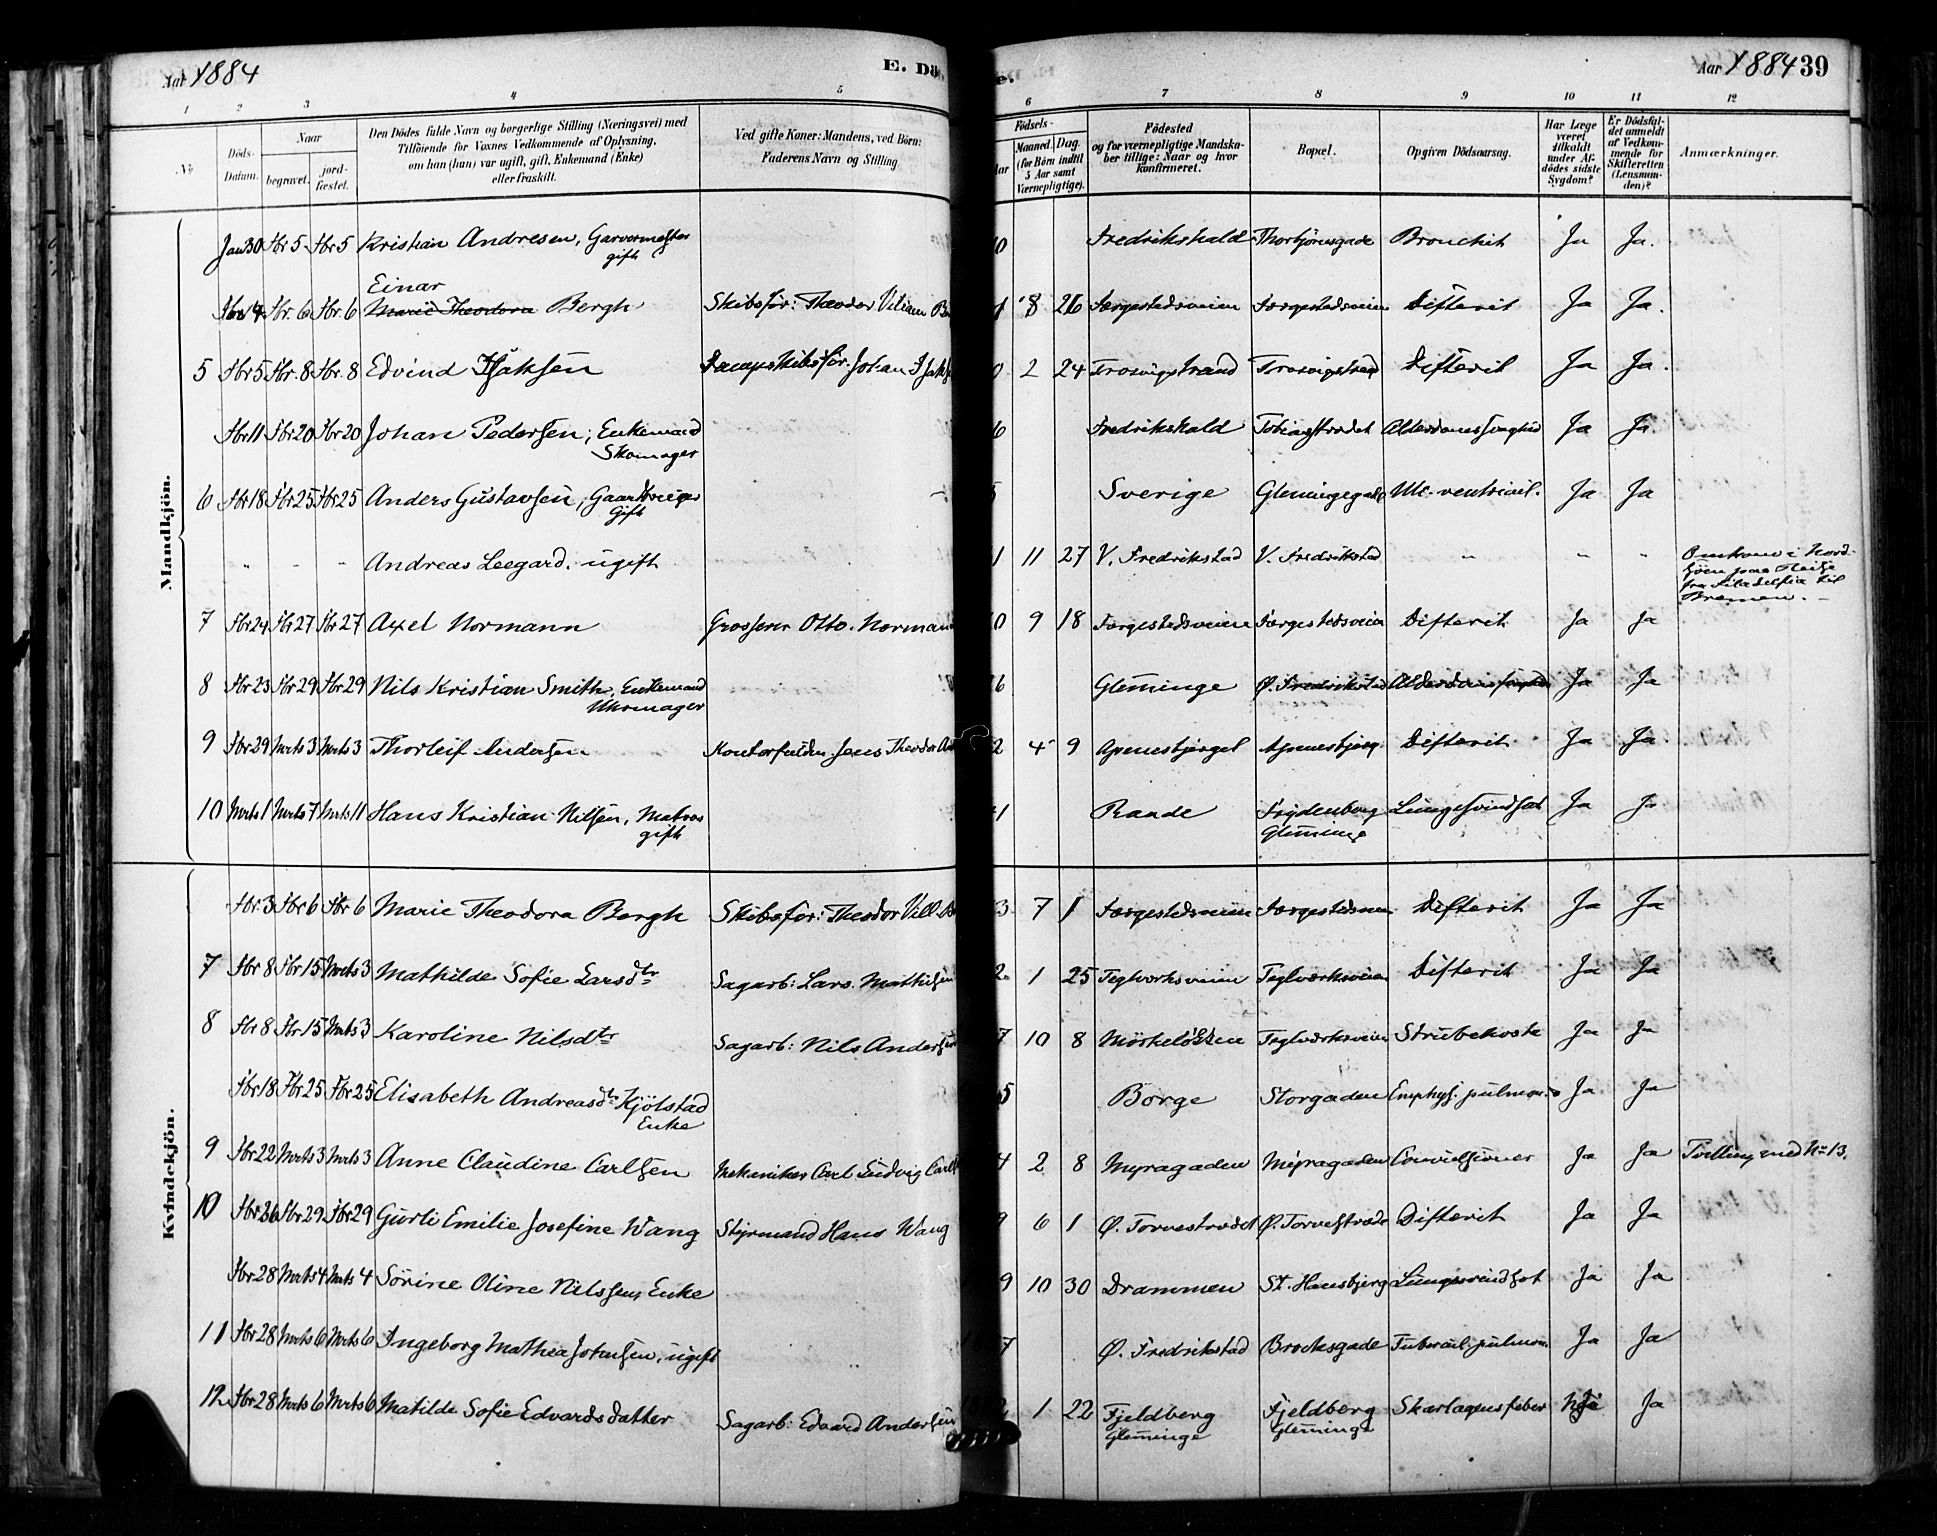 Aar 1884
E. Dö
e.
Aar 1884 39
1 2 3 4 5 6 7 8 9 10 11 12
No
Döds-Datum.
Naar
begravet.
jord-fæstet.
Den Dödes fulde Navn og borgerlige Stilling (Næringsvei) med
Tilföiende for Voxnes Vedkommende af Oplysning,
om han (hun) var ugift, gift, Enkemand (Enke)
eller fraskilt.
Ved gifte Koner: Mandens, ved Börn:
Faderens Navn og Stilling
Födsels-
Aar
Maaned. Dag.
(for Börn indtil
5 Aar samt
Værnepligtige).
Födested
og for værnepligtige Mandska-
ber tillige: Naar og hvor
Konfirmeret.
Bopæl.
Opgiven Dödsaarsag.
Har Læge
været
tilkaldt
under Af-
dödes sidste
Sygdom?
Er Dödsfal-
det anmeldt
af Vedkom-
mende for
Skifteretten
(Lensman-
den)?
Anmærkninger.
Mandkjön.
Jan 30 Fbr 5 Fbr 5 Kristian Andresen, Garvermester gift 0 Fredrikshald Thorbjörnsgade Bronchit Ja Ja.
Einar
Fbr. 6 Fbr. 6 Marie Theodora Bergh Skibsfør: Theodor Viliam 8 26 Færgestedsveien Færgestedsveien Difterit Ja Ja.
5 Fbr 5 Fbr. 8 Fbr. 8 Edvind Isaksen Dampskibsfør. Johan Isaks 0 2 24 Trosvigstrand Trosvigstrand Difterit Ja Ja.
Fbr 11 Fbr 20 Fbr 20 Johan Pedersen, Enkemand Skomager 6 Fredrikshald Alderdomssvaghed Ja Ja
6 Fbr 18 Fbr 25 Fbr 25 Anders Gustavsen, Gift Sverige Glemmingegade Ulc. ventricul. Ja Ja
" " " Andreas Leegard. ugift 1 11 27 V. Fredrikstad V. Fredrikstad " " " Omkom i Nord-
sjöen paa Reise
fra Filadelfia til
Bremen.
7 Fbr 24 Fbr 27 Fbr 27 Axel Normann Grosserer Otto. Norman 0 9 18 Færgestedsveien Færgestedsveien Difterit Ja Ja
8 Fbr 23 Fbr 29 Fbr 29 Nils Kristian Smith, Enkemand Uhrmager 6 Glemminge Ø. Fredrikstad Alderdomssvaghed Ja Ja
9 Fbr 29 Mrts 3 Mrts 3 Thorleif Andersen Jens Theodor 2 4 9 Apenesbjerget Apenesbjerg Difterit Ja Ja
10 Mrts 1 Mrts 7 Mrts 11 Hans Kristian Nilsen, Matros gift 1 Raade Frydenberg Glemminge Lungesvindsot Ja Ja
Kvindekjön.
Fbr 3 Fbr 6 Fbr 6 Marie Theodora Bergh Skibsfør: Theodor Vill. 3 7 1 Færgestedsveien Difterit Ja Ja
7 Fbr 8 Fbr 15 Mrts 3 Mathilde Sofie Larsdtr Sagarb: Lars. Mathisen 2 1 25 Teglverksveien Teglværksveien Difterit Ja Ja
8 Fbr 8 Fbr 15 Mrts 3 Karoline Nilsdtr Sagarb: Nils Andersen 7 10 8 Teglværksveien Strubehoste Ja Ja
Fbr 18 Fbr 25 Fbr 25 Elisabeth Andreasdtr Kjölstad Enke 5 Borge Storgaden Emphys. pulmon. Ja Ja
9 Fbr 22 Mrts 3 Mrts 3 Anne Claudine Carlsen Mekaniker Carl Ludvig Carls 4 2 8 Myragaden Myragaden Convulsioner Ja Ja Tvilling med No 13.
10 Fbr 26 Fbr 29 Fbr 29 Gurli Emilie Josefine Wang Styrmand Hans Wang 9 6 1 Ø. Torvestrædet Ø. Torvestræde Difterit Ja Ja
Fbr 28 Mrts 4 Mrts 4 Sörine Oline Nilssen, Enke 9 10 30 Drammen St. Hansbjerg Lungesvindsot Ja Ja
11 Fbr 28 Mrts 6 Mrts 6 Ingeborg Mathea Johnsen, ugift 7 Ø. Fredrikstad Brocksgade Tubercul. pulmon. Ja Ja
12 Fbr 28 Mrts 6 Mrts 6 Matilde Sofie Edvardsdatter Sagarb: Edvard Andersen 2 1 22 Fjeldberg Glemminge Fjeldberg Glemminge Skarlagensfeber Ja